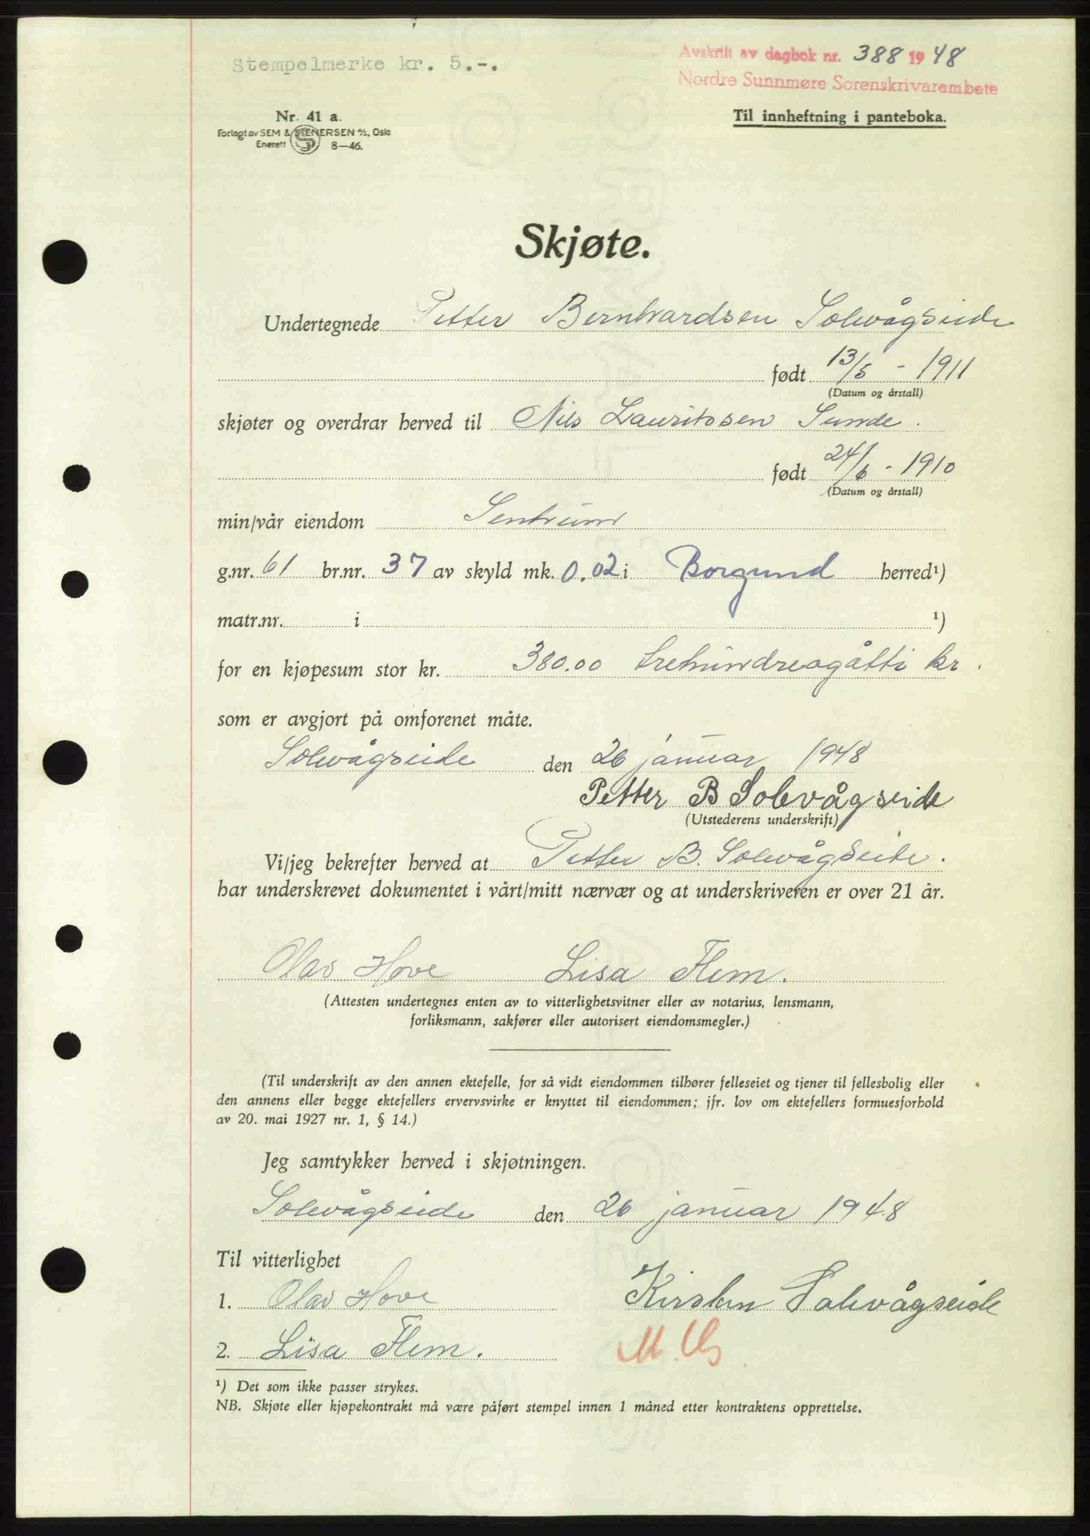 Stempelmerke kr. 5.-.
Avskrift av dagbok nr. 388 1948
Nordre Sunnmøre Sorenskrivarembete
Nr. 41 a.
Forlagt av SEM & STENERSEN A/S, Oslo
Enerett S 8—46.
Til innheftning i panteboka.
Skjøte.
Undertegnede Petter Bernhardsen Solevågseide
født 13/5 - 1911
(Datum og årstall)
skjøter og overdrar herved til Nils Lauritssen Sunde.
født 24/6 - 1910
(Datum og årstall)
min/vår eiendom Sentrum
g.nr. 61 br.nr. 37 av skyld mk. 0.02 i Borgund herred¹)
matr.nr. i ¹)
for en kjøpesum stor kr. 380.00 trehundreogåtti kr.
som er avgjort på omforenet måte.
Solevågseide den 26 januar 1948
Petter B Solevågseide
(Utstederens underskrift)
Vi/jeg bekrefter herved at Petter B. Solevågseide.
har underskrevet dokumentet i vårt/mitt nærvær og at underskriveren er over 21 år.
Olav Hove Lisa Flem.
(Attesten undertegnes enten av to vitterlighetsvitner eller av notarius, lensmann,
forliksmann, sakfører eller autorisert eiendomsmegler.)
(Til underskrift av den annen ektefelle, for så vidt eiendommen tilhører felleseiet og tjener til fellesbolig eller
den annens eller begge ektefellers ervervsvirke er knyttet til eiendommen; jfr. lov om ektefellers formuesforhold
av 20. mai 1927 nr. 1, § 14.)
Jeg samtykker herved i skjøtningen.
Solevågseide den 26 januar 1948
Til vitterlighet
1. Olav Hove Kirsten Solevågseide
2. Lisa Flem.
¹) Det som ikke passer strykes.
NB. Skjøte eller kjøpekontrakt må være påført stempel innen 1 måned etter kontraktens opprettelse.